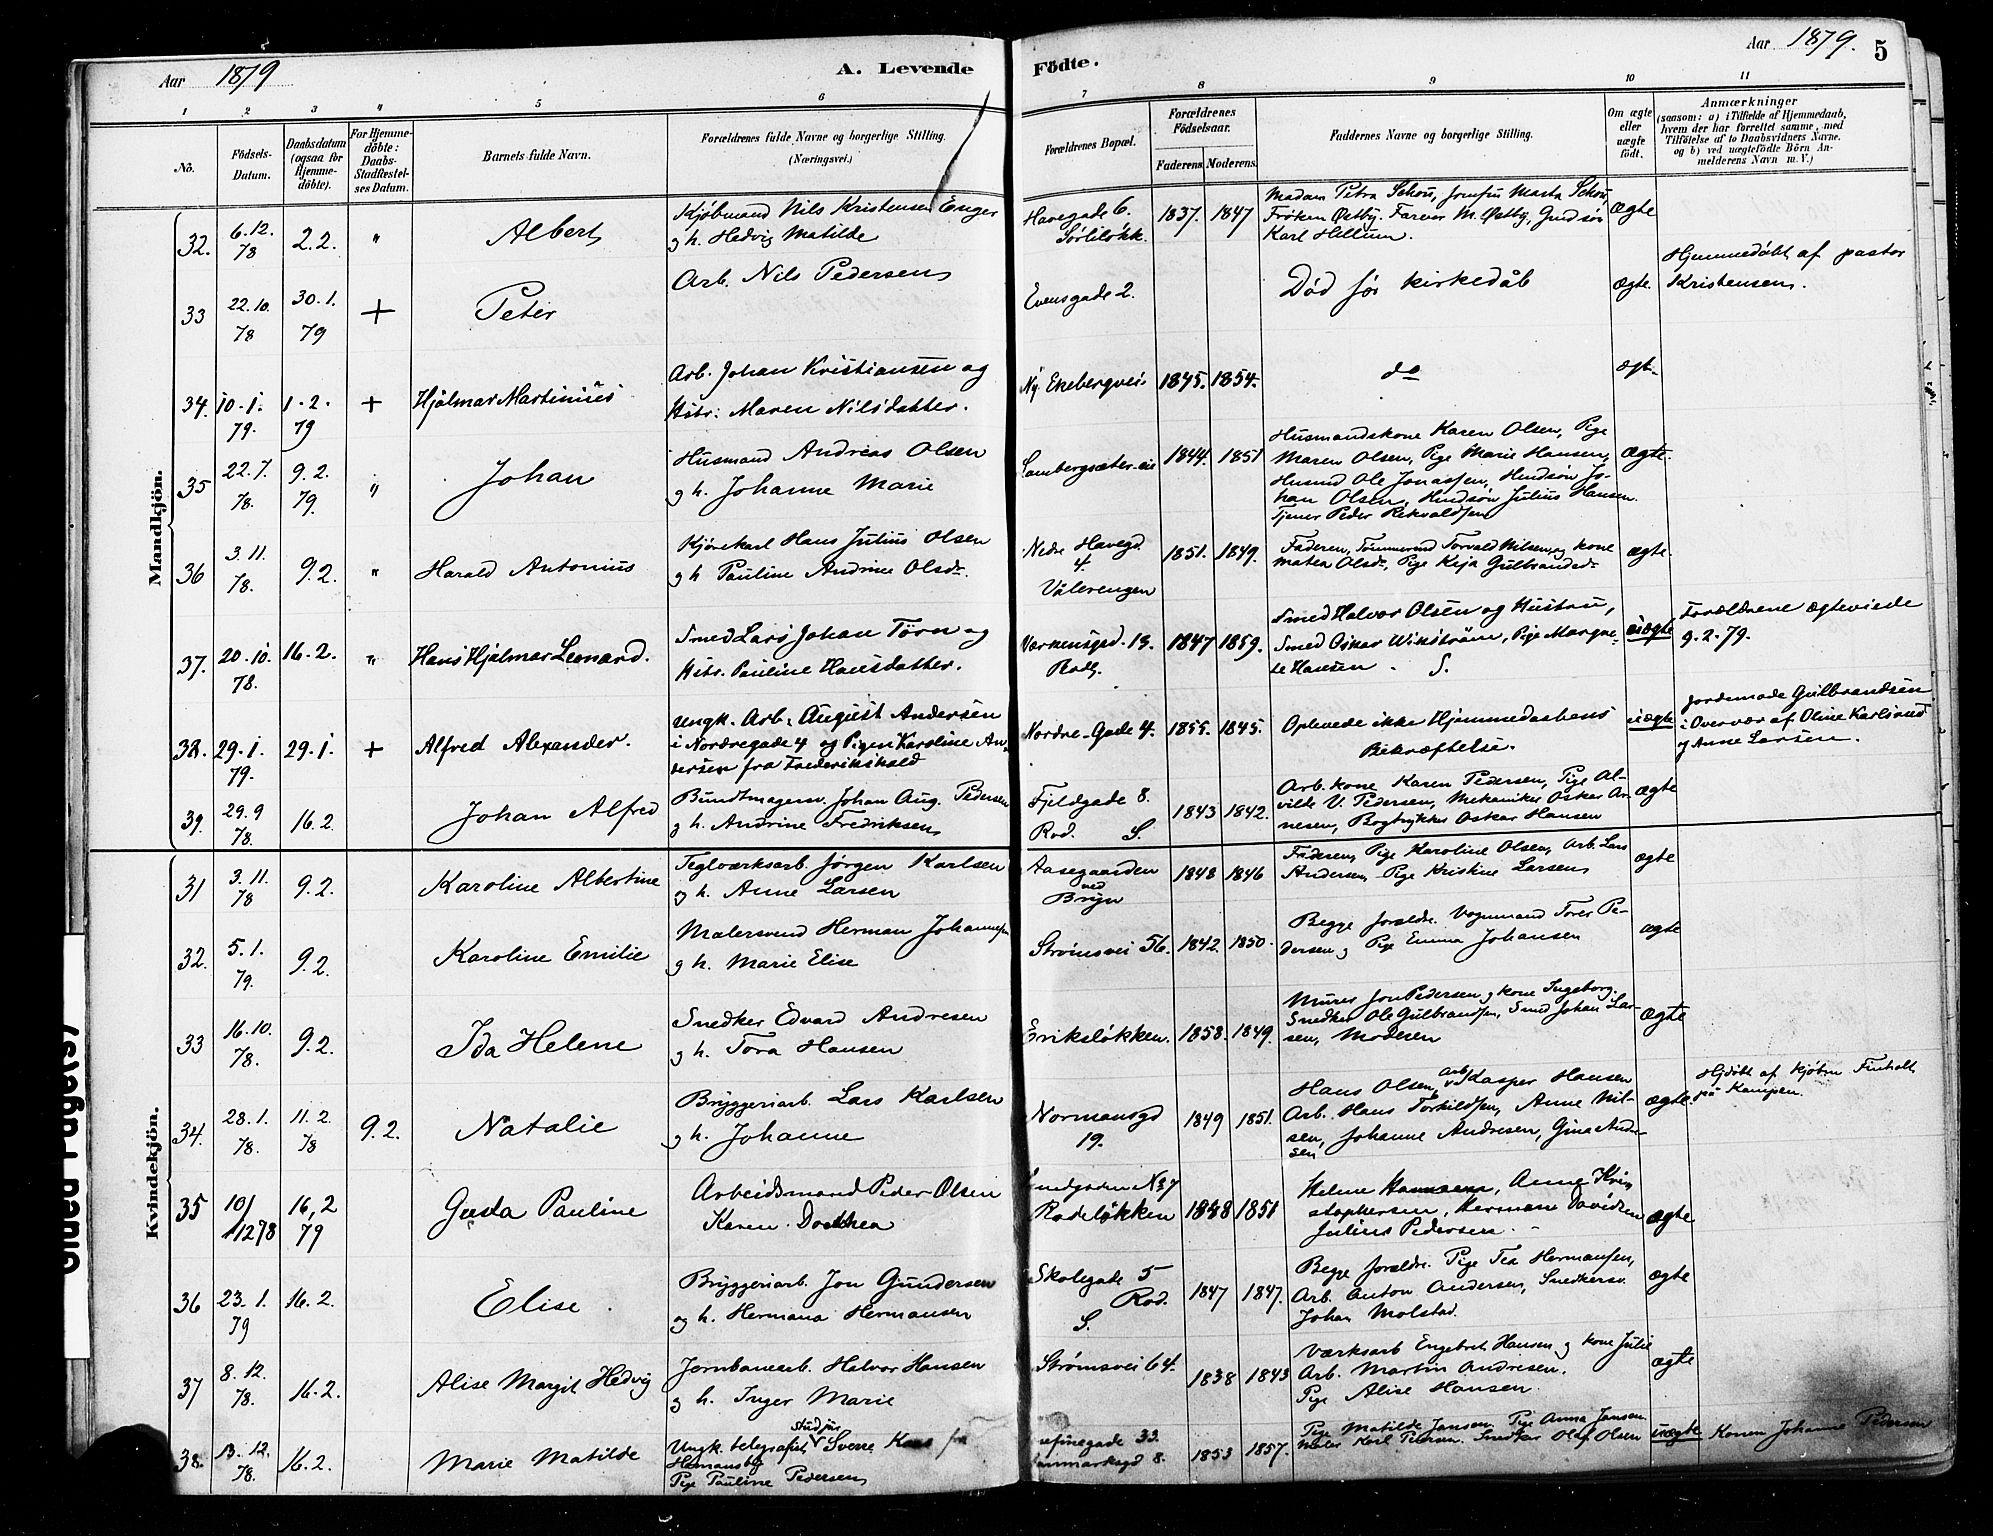 Aar 1879
A. Levende
Födte.
Aar 1879.
5
1 2 3 4 5 6 7 8 9 10 11
No.
Födsels-
Datum.
Daabsdatum
(ogsaa for
Hjemme-
döbte).
For Hjemme-
döbte:
Daabs-
Stadfæstel-
ses Datum.
Barnets fulde Navn.
Forældrenes fulde Navne og borgerlige Stilling.
(Næringsvei.)
Forældrenes Bopæl.
Forældrenes
Födselsaar.
Faderens. Moderens.
Faddernes Navne og borgerlige Stilling.
Om ægte
eller
uægte
født.
Anmærkninger
(saasom: a) i Tilfælde af Hjemmedaab,
hvem der har forrettet samme, med
Tilföielse af to Daabsvidners Navne.
og b) ved uægtefödte Börn An-
melderens Navn m. V.)
Mandkjön.
32. 6.12. 78 2.2. " Albert
Kjøbmand Nils Kristensen Enger
og h. Hedvig Matilde
Havegade 6.
Sørliløkk.
1837. 1847
Madam Petra Schou, Jomfru Marta Schou,
Frøken Østby. Farver M. Østby, Grudsør
Karl Hellum.
Ægte
33 22.10. 78 30.1. 79 + Peter
Arb. Nils Pedersen
Evensgade 2.
Død før kirkedåb
Ægte.
Hjemmedøbt af pastor
Kristensen.
34. 10.1. 79. 1.2. 79 + Hjalmar Martinius
Arb. Johan Kristiansen og
Hstr: Maren Nilsdatter.
Ny Ekebergvei.
1845. 1854.
do
ægt.
35 22.7. 78. 9.2. 79. " Johan
Husmand Andreas Olsen
og h. Johanne Marie
1844. 1851
Husmandskone Karen Olsen, Pige
Maren Olsen, Pige Marie Hansen,
Husmd Ole Jonassen, Husdsøn Jo-
han Olsen, Husdsøn Julius Hansen.
Tjener Peder Rekvaldsen
Ægte.
36 3.11. 78. 9.2. " Harald Antonius
Kjørekarl Hans Julius Olsen
og h Pauline Andrine Olsdr.
Nedre Havegd.
4.
Vålerengen
1851. 1849.
Faderen, Tømmermd Torvald Nilsen og kone
Matea Olsd., Pige Kaja Gulbrandsd.
ægte.
37. 20.10. 78. 16.2. " Hans Hjalmar Leonard.
Smed Lars Johan Törn og
Hstr. Pauline Hansdatter.
Verkensgd. 13.
Rodl.
1847 1859.
Smed Halvor Olsen og Hustru,
Smed Oskar Wikström, Pige Margre-
te Hansen. S.
uægte
Forældrene ægteviede
9.2.79.
38. 29.1. 79. 29.1. + Alfred Alexander.
Ungk. Arb: August Andersen
i Nordregade 4 og Pigen Karoline An-
dersen fra Frederikshald
Nordre-Gade 4.
1855. 1845.
Oplevede ikke Hjemmedaabens
Bekræftelse.
uægte
Jordemode Gulbrandsen
i Overvær af Oline Karlsrud
og Anne Larsen.
39. 29.9 78. 16.2. Johan Alfred
Bundtmagersv. Johan Aug. Pedersen
og h. Andrine Fredriksen
Fjeldgade 8.
Rod. S.
1843 1842.
Arb.kone Karen Pedersen, Pige Al-
vilde V. Pedersen, Mekaniker Oskar Ar-
nesen, Bogtrykker Oskar Hansen
ægte
Kvindekjön.
31 3.11. 78 9.2. Karoline Albertine
Teglværksarb. Jørgen Karlsen
og h. Anne Larsen
Aasegaarden
ved
Bryn
1848 1846
Faderen, Pige Karoline Olsen, Arb. Lars
Andersen, Pige Kristine Larsen
ægte
32. 5.1. 79. 9.2. Karoline Emilie
Malersvend Herman Johannesen
og h. Marie Elise
Strømsvei 56.
1842. 1850.
Begge foreldre. Vognmand Tores Pe-
dersen og Pige Emma Johansen
ægte
33 16.10. 78. 9.2. Ida Helene
Snedker Edvard Andresen
og h. Tora Hansen
Eriksløkken.
1858. 1849.
Murer Jon Pedersen og kone Ingeborg.
Snedker Ole Gulbrandsen, Smed Johan Lar-
sen, Moderen
Ægte
34. 28.1. 78. 11.2. 78 9.2. Natalie
Bryggeriarb. Lars Karlsen
og h. Johanne
Normansgd
19.
1849 1851.
Hans Olsen, arb. Kasper Hansen
Arb. Hans Torkildsen, Anne Nil-
sen, Johanne Andresen, Gina Andre-
sen
Ægte.
Hjdøbt af kjøbm Finholt
på Kampen.
35 10/ 1278 16,2 79 Gusta Pauline
Arbeidsmand Peder Olsen
Karen Dorthea
N 37
Rodeløkken
1848 1851
Helene Hansen, Anne Kri-
stophersen, Herman Davidsen
Julius Pedersen
ægte
36 23.1. 79 16.2. Elise.
Bryggeriarb. Jon Gundersen
og h. Hermana Hermansen
Skolegade 5
Rod.
S.
1847 1847.
Begge foreldre. Pige Tea Hermansen,
Arb. Anton Andersen, Snedkersv.
Johan Molstad.
ægte
37 8.12. 78. 16.2. Alise Margit Hedvig
Jernbanearb. Halvor Hansen
og h. Inger Marie
Strømsvei 64.
1838 1843
Værksarb Engebret Hansen og kone Julie
Arb. Martin Andresen.
Pige Alise Hansen.
ægte
38. 13.12. 78. 16.2. Marie Matilde
Ungk. telegrafist Sverre
Homansby
Pige Pauline Pedersen
33.
8.
1853 1857.
Pige Matilde Jansen. Pige Anna Jansen
Maler Karl Petersen. Snedker Olaf Olsen
uægte
Konen Johanne Pedersen